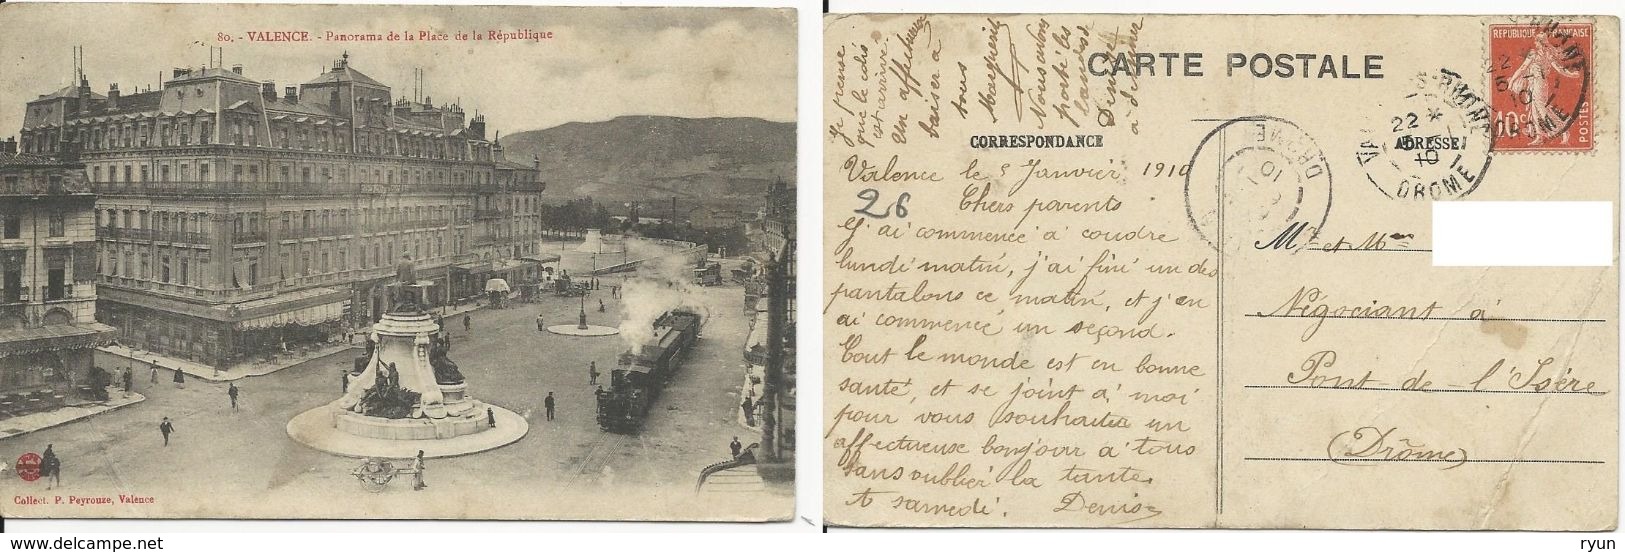 80. - VALENCE. - Panorama de la Place de la République
Collect. P. Peyrouze, Valence
Je pense
que le colis
est arrivé
Un affectueux
baiser à
tous
Marguerite
Nous avons
posté les
Denise
à dîner
CARTE POSTALE
CORRESPONDANCE
ADRESSE
REPUBLIQUE FRANÇAISE
10c
POSTES
22 *
5 - 1
10
DROME
22 *
5 - 1
10
DROME
DROME
10
26
Valence le 5 Janvier 1910
Chers parents
J'ai commencé à coudre
lundi matin, j'ai fini un des
pantalons ce matin, et j'en
ai commencé un second.
Tout le monde est en bonne
santé, et se joint à moi
pour vous souhaiter un
affectueux bonjour à tous
sans oublier la tante.
A samedi. Denise
Mr et Mme
Négociant à
Pont de l'Isère
(Drôme)
www.delcampe.net
ryun